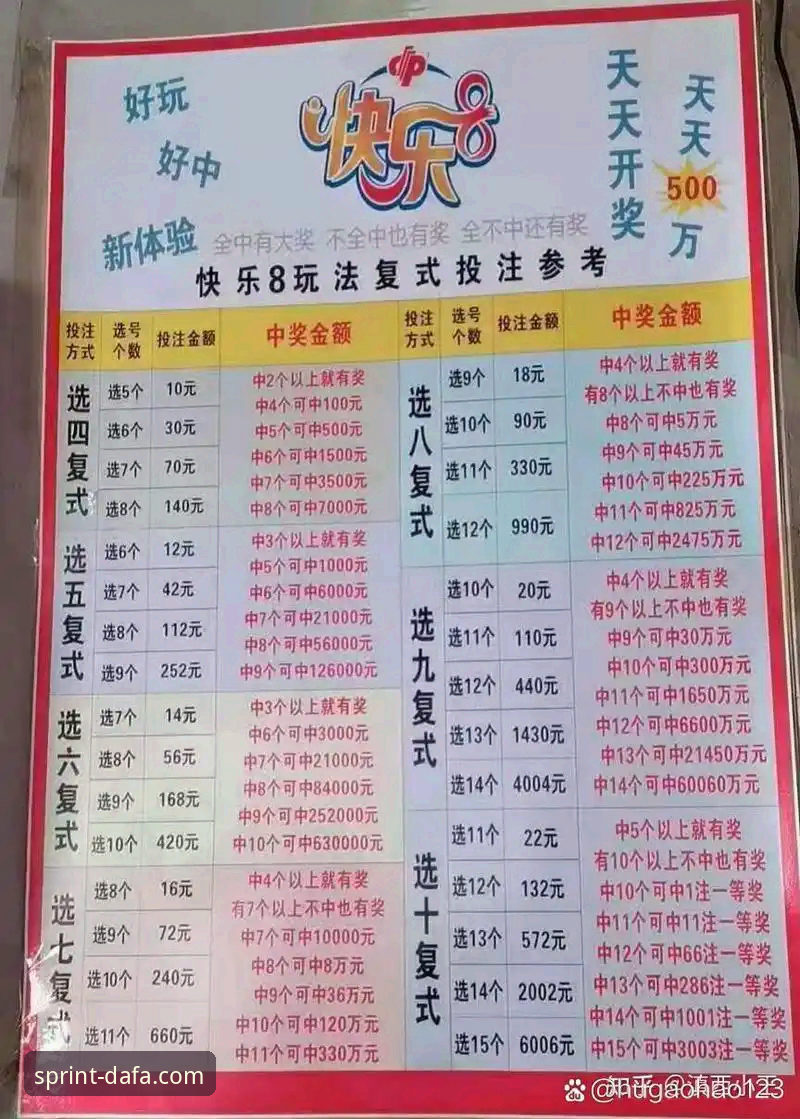 好玩
好中
新体验
快乐8
天天开奖
天天
500
万
全中有大奖 不全中也有奖 全不中还有奖
快乐8玩法复式投注参考
投注方式 选号个数 投注金额 中奖金额
选四复式
选5个 10元
选6个 30元
选7个 70元
选8个 140元
中2个以上就有奖
中4个可中100元
中5个可中500元
中6个可中1500元
中7个可中3500元
中8个可中7000元
选五复式
选6个 12元
选7个 42元
选8个 112元
选9个 252元
中3个以上就有奖
中5个可中1000元
中6个可中6000元
中7个可中21000元
中8个可中56000元
中9个可中126000元
选六复式
选7个 14元
选8个 56元
选9个 168元
选10个 420元
中3个以上就有奖
中6个可中3000元
中7个可中21000元
中8个可中84000元
中9个可中252000元
中10个可中630000元
选七复式
选8个 16元
选9个 72元
选10个 240元
选11个 660元
中4个以上就有奖
有7个以上不中也有奖
中7个可中10000元
中8个可中8万元
中9个可中36万元
中10个可中120万元
中11个可中330万元
投注方式 选号个数 投注金额 中奖金额
选八复式
选9个 18元
选10个 90元
选11个 330元
选12个 990元
中4个以上就有奖
有8个以上不中也有奖
中8个可中5万元
中9个可中45万元
中10个可中225万元
中11个可中825万元
中12个可中2475万元
选九复式
选10个 20元
选11个 110元
选12个 440元
选13个 1430元
选14个 4004元
中4个以上就有奖
有9个以上不中也有奖
中9个可中30万元
中10个可中300万元
中11个可中1650万元
中12个可中6600万元
中13个可中21450万元
中14个可中60060万元
选十复式
选11个 22元
选12个 132元
选13个 572元
选14个 2002元
选15个 6006元
中5个以上就有奖
有10个以上不中也有奖
中10个可中1注一等奖
中11个可中11注一等奖
中12个可中66注一等奖
中13个可中286注一等奖
中14个可中1001注一等奖
中15个可中3003注一等奖
sprint-dafa.com